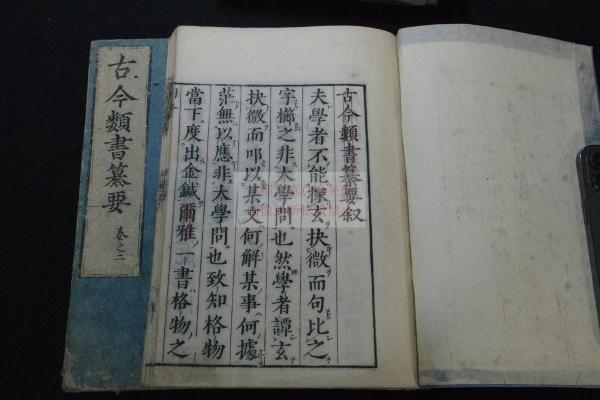 古今類書纂要叙
夫學者不能探玄抉微而句比之
字櫛之非大學問也然學者譚玄
抉微而叩以某文何解某事何據
茫無以應非大學問也致知格物
當下度出金鍼爾雅一書格物之
古今類書纂要
卷之二